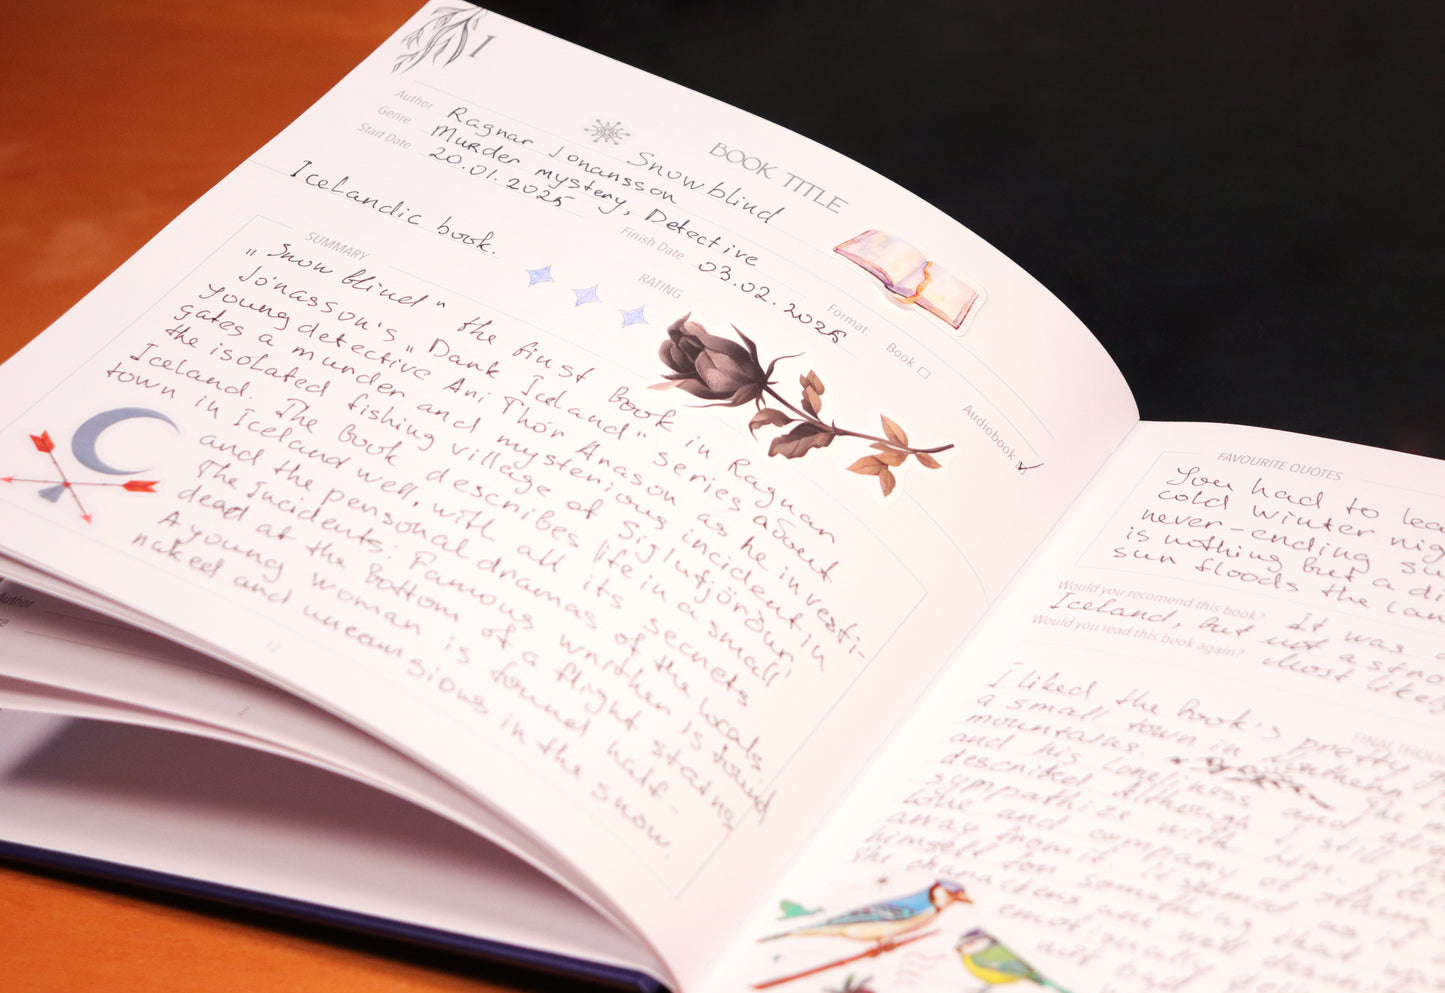 I
BOOK TITLE
Snowblind
Author Ragnar Jonansson
Genre Murder mystery, Detective
Start Date 20.01.2025
Finish Date 03.02.2025
Format: Book
Audiobook
Icelandic book.
RATING
SUMMARY
"Snow blind" the first book in Ragnar
Jónasson's "Dark Iceland" series about
young detective Ari Thór Arason as he investi-
gates a murder and mysterious incident in
the isolated fishing village of Siglufjördur,
Iceland. The book describes life in a small
town in Iceland well, with all its secrets
and the personal dramas of the locals.
The incidents: Famous writher is found
dead at the bottom of a flight stairs
A young woman is found half-
naked and uncounsious in the snow.
12
Author
2
FAVOURITE QUOTES
You had to lea
cold winter nig
never-ending su
is nothing but a di
sun floods the lan
Would you recomend this book? It was a
Iceland, but not a stro
Would you read this book again? Most likely
FINAL THOU
I liked the book's pretty
a small town in
mountains. The
and his loneliness and
described. Although I still
sympathize with him.
love and company of
away from it. It seemed
himself for something that
The characters are well
emotionally
not bad